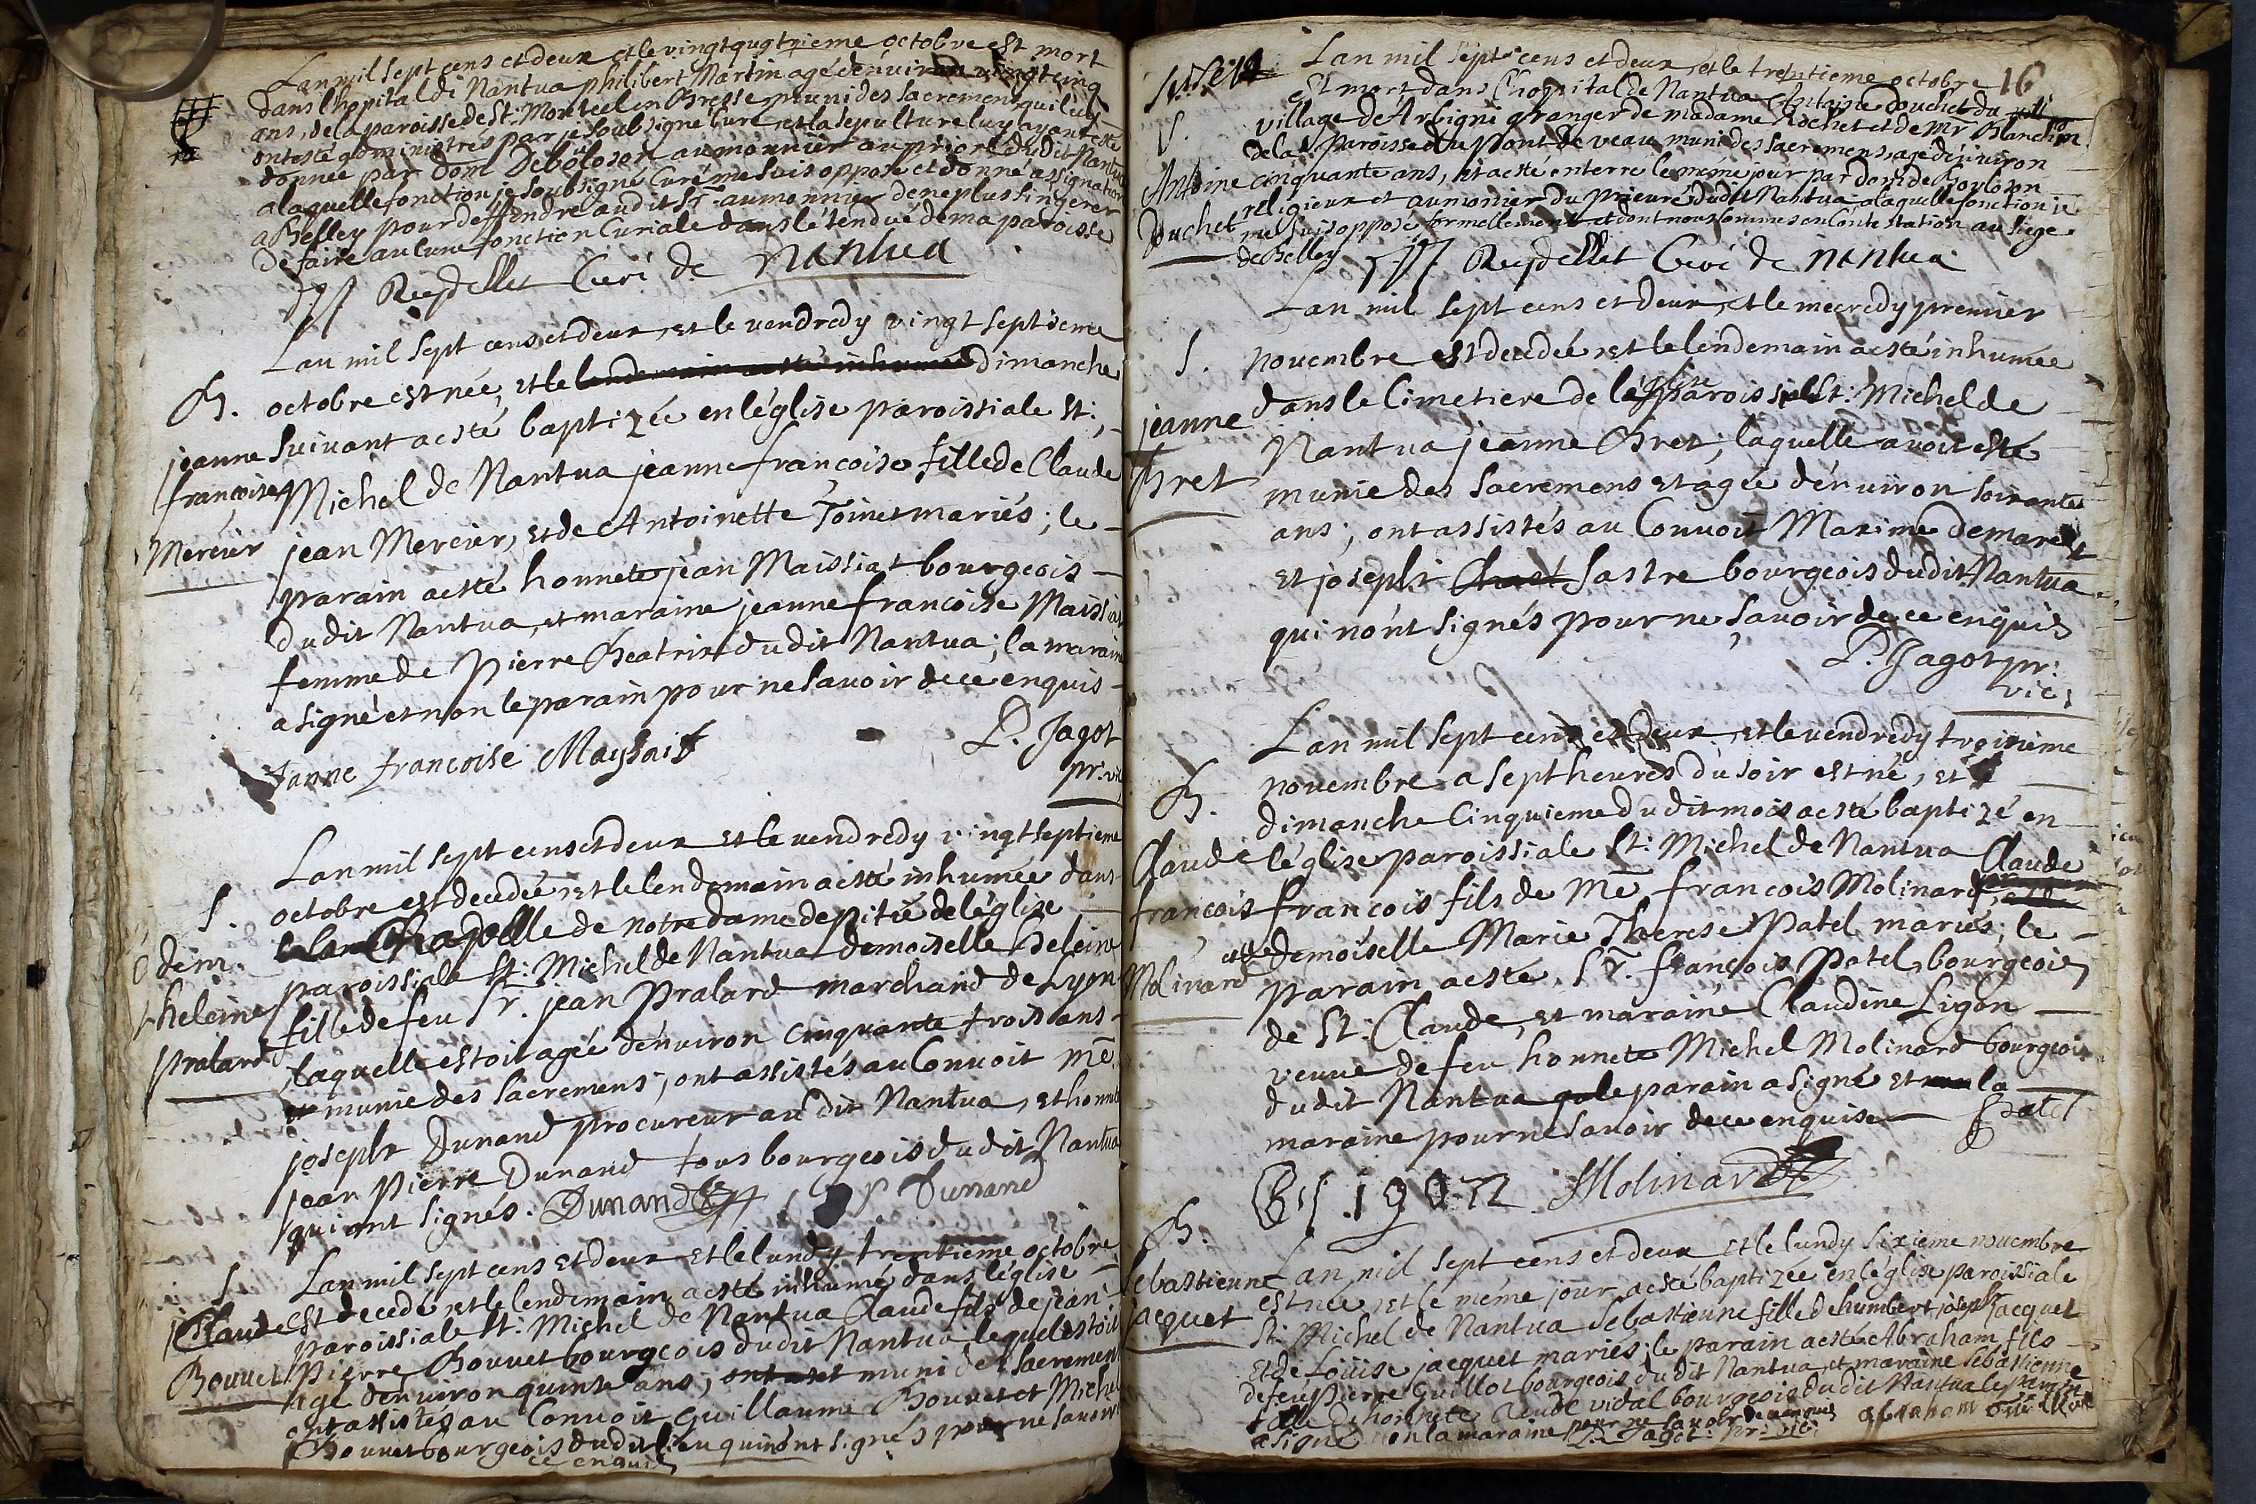 Lan mil sept cens et deux et le vingt quatrieme octobre est mort
dans lhopital di Nantua philibert Martin agé denviron vingt cinq
ans, de la paroisse de St: Martin en Bresse muni des sacremens qui luy
ont esté administrés par je soubsigné Curé et la sepulture luy ayant esté
donnée par Dom Deboloson aumônnier au prioré dudit Nantua
a laquelle fonction je soubsigné Curé me suis opposé et donné assignation
a Belley pour deffendre audit Sr. aumonnier de ne plus singerer
de faire aucune fonction Curiale dans létendue de ma paroisse
Reydellet Curé de Nantua
Lan mil sept cens et deux, et le vendredy vingt septieme
B. octobre est née, et le lendemain a esté inhumée dimanche
jeanne suivant a esté baptizée en léglise paroissiale St:
françoise Michel de Nantua jeanne françoise fille de Claude
Mercier jean Mercier, et de Antoinette Toinet mariés; le
parain a esté honnete jean Maissiat bourgeois
dudit Nantua, et maraine jeanne francoise Maissiat
femme de Pierre Beatrix dudit Nantua; la maraine
a signé et non le parain pour ne savoir de ce enquis
Janne francoise Mayssait P. Jagot
pr. vic
Lan mil sept cens et deux et le vendredy vingt septieme
S. octobre est decedée, et le lendemain a esté inhumée dans
demr. la Chapelle de notre dame de pitié de léglise
heleine paroissiale St: Michel de Nantua demoiselle heleine
pralard fille de feu Sr. jean Pralard marchand de Lyon
laquelle estoit agée denviron cinquante trois ans
et munie des sacremens; ont assistés au Convoit Me.
joseph Dunand procureur au dit Nantua, et honnete
jean Pierre Dunand tous bourgeois dudit Nantua
qui ont signés. Dunand J P Dunand
S. Lan mil sept cens et deux et le lundy trentieme octobre
Claude est decedé et le lendemain a esté inhumé dans léglise
paroissiale St: Michel de Nantua Claude fils de jean
Bouvet Pierre Bouvet bourgeois dudit Nantua lequel estoit
agé denviron quinze ans, muni des sacremens
ont assistés au Convoit Guillaume Bouvet et Michel
Bouvet bourgeois dudit lieu qui nont signés pour ne savoir
de ce enquis
16
Lan mil sept cens et deux, et le trentieme octobre
est mort dans lhopital de Nantua Antoine Douchet du
S. village de Arbigni granger de madame Rochet et de Mr Blanchon
de la paroisse du pont de veau muni des sacremens, agé denviron
Antoine cinquante ans, et a esté enterré le même jour par dom de Boloson
Duchet religieux et aumonier du prieuré dudit Nantua a laquelle fonction je
me suis opposé formellement et dont nous sommes en Contestation au siege
de Belley Reydellet Curé de Nantua
Lan mil sept cens et deux, et le mecredy premier
S. novembre est decedée et le lendemain a esté inhumée
jeanne dans le Cimetiere de léglise paroissiale St: Michel de
Bret Nantua jeanne Bret, laquelle avoit esté
munie des sacremens et agée denviron soixante
ans; ont assistés au Convoit Maxime demarest
et joseph Sastre bourgeois dudit Nantua
qui nont signés pour ne savoir de ce enquis
P. Jagot pr:
vic.
Lan mil sept cens et deux, et le vendredy troisieme
B. novembre a sept heures du soir est né, et
dimanche Cinquieme dudit mois a esté baptizé en
Claude léglise paroissiale St: Michel de Nantua Claude
francois francois fils de Me francois Molinard,
Molinard et de demoiselle Marie Therese Patel mariés; le
parain a esté Sr. françois Patel, bourgeois
de St: Claude, et maraine Claudine Ligon
veuve de feu honnete Michel Molinard bourgeois
dudit Nantua le parain a signé et non la
maraine pour ne savoir de ce enquise Patel
Molinard
B. Lan mil sept cens et deux et le lundy sixieme novembre
Sebastienne est née, et le même jour a esté baptizée en léglise paroissiale
jacquet St: Michel de Nantua Sebastienne fille de humbert joseph jacquet
et de Loüise jacquet mariés; le parain a esté Abraham fils
de feu Pierre Guillot bourgeois dudit Nantua, et maraine Sebastienne
fille dhonnete Claude vidal bourgeois dudit Nantua le parain
a signé non la maraine pour ne savoir de ce enquis abraham Guillot
P. Jagot pr: vic: